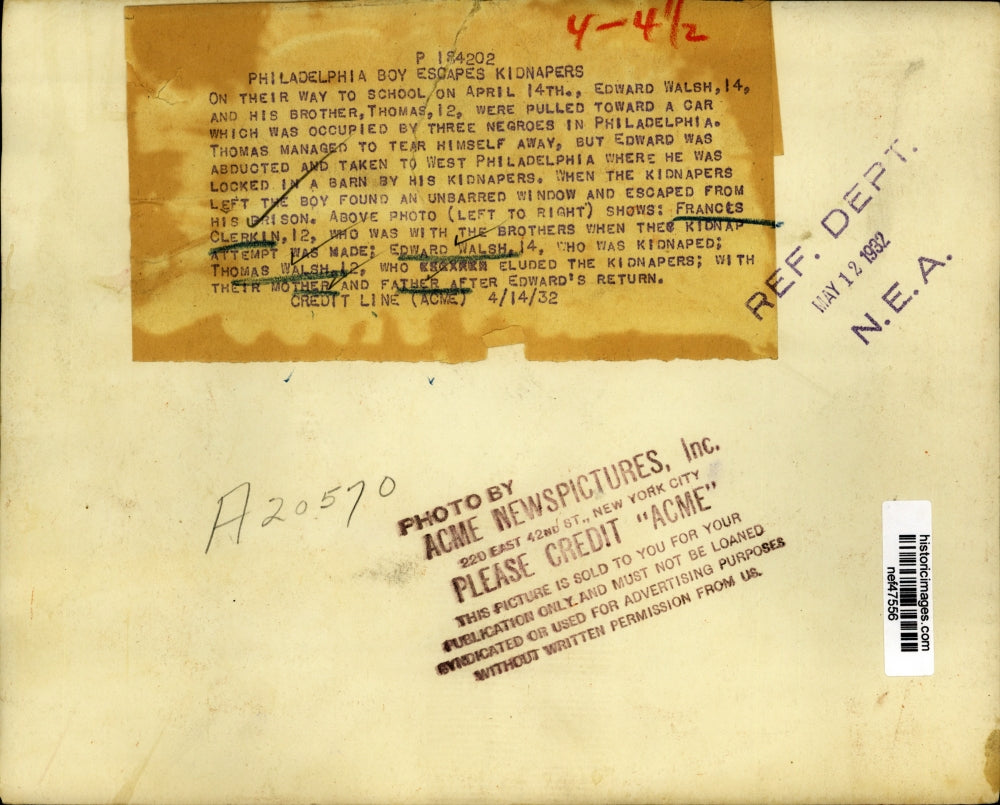 4-4 1/2
P 184202
PHILADELPHIA BOY ESCAPES KIDNAPERS
ON THEIR WAY TO SCHOOL ON APRIL 14TH., EDWARD WALSH,14,
AND HIS BROTHER,THOMAS,12, WERE PULLED TOWARD A CAR
WHICH WAS OCCUPIED BY THREE NEGROES IN PHILADELPHIA.
THOMAS MANAGED TO TEAR HIMSELF AWAY, BUT EDWARD WAS
ABDUCTED AND TAKEN TO WEST PHILADELPHIA WHERE HE WAS
LOCKED IN A BARN BY HIS KIDNAPERS. WHEN THE KIDNAPERS
LEFT THE BOY FOUND AN UNBARRED WINDOW AND ESCAPED FROM
HIS PRISON. ABOVE PHOTO (LEFT TO RIGHT) SHOWS: FRANCIS
CLERKIN,12, WHO WAS WITH THE BROTHERS WHEN THE KIDNAP
ATTEMPT WAS MADE; EDWARD WALSH,14, WHO WAS KIDNAPED;
THOMAS WALSH,12, WHO ELUDED THE KIDNAPERS; WITH
THEIR MOTHER AND FATHER AFTER EDWARD'S RETURN.
CREDIT LINE (ACME) 4/14/32
REF. DEPT.
MAY 12 1932
N.E.A.
A20570
PHOTO BY
ACME NEWSPICTURES, Inc.
220 EAST 42ND ST., NEW YORK CITY
PLEASE CREDIT "ACME"
THIS PICTURE IS SOLD TO YOU FOR YOUR
PUBLICATION ONLY AND MUST NOT BE LOANED
SYNDICATED OR USED FOR ADVERTISING PURPOSES
WITHOUT WRITTEN PERMISSION FROM US.
historicimages.com
nef47556